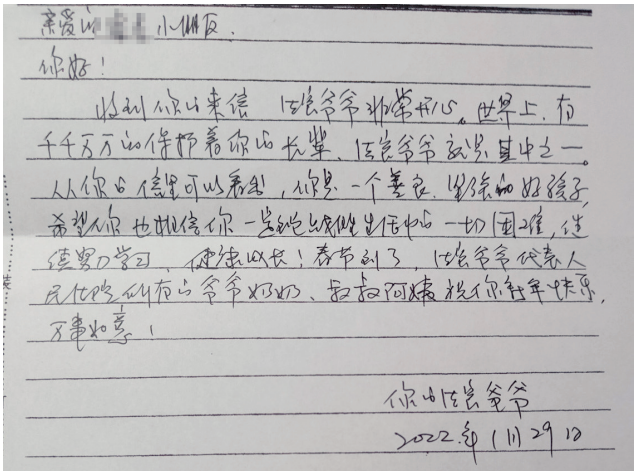 亲爱的小朋友.
你好!
收到你的来信 法官爷爷非常开心。世界上,有
千千万万的保护着你的长辈、法官爷爷就是其中之一。
从你的信里可以看出,你是一个善良、坚强的好孩子,
希望你也相信你一定能战胜生活中的一切困难,继
续努力学习,健康成长!春节到了,法官爷爷代表人
民法院所有的爷爷奶奶、叔叔阿姨祝你新年快乐,
万事如意!
你的法官爷爷
2022.年1月29日